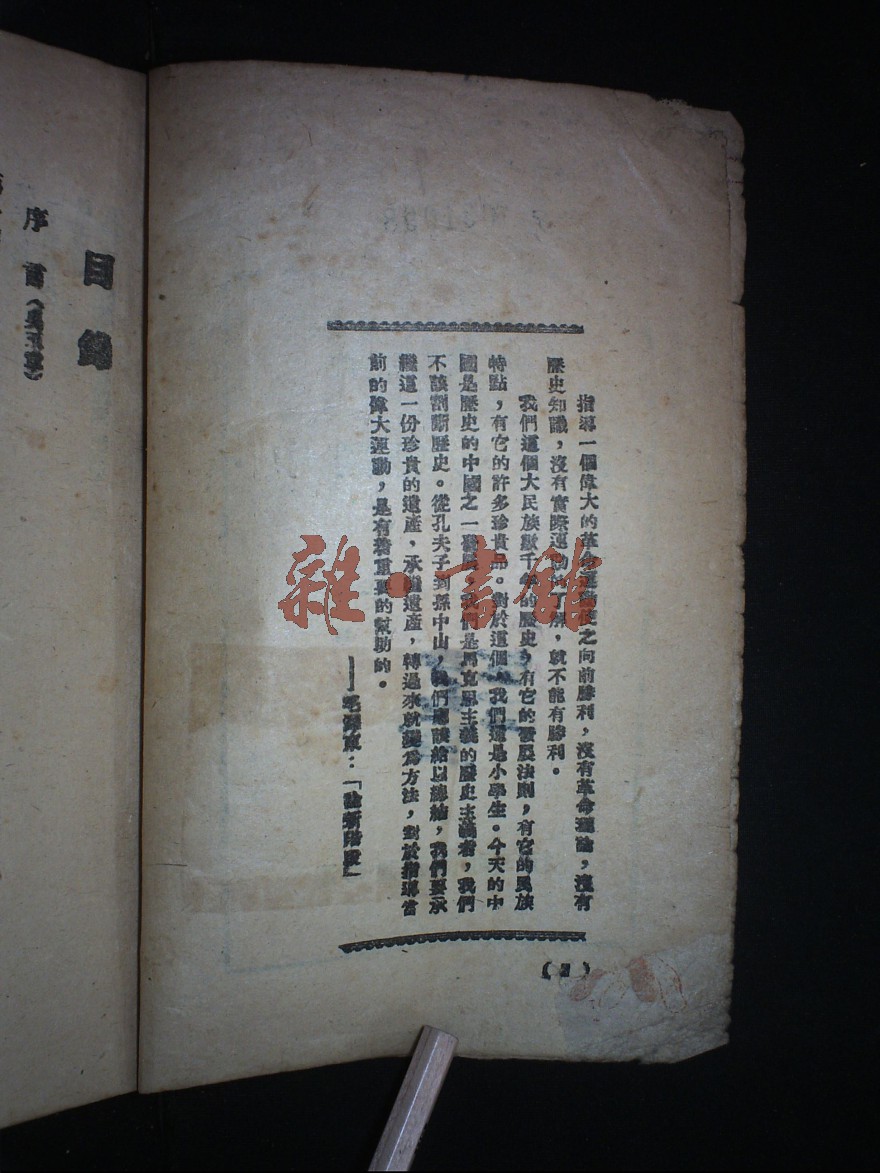 指導一個偉大的革命運動使之向前勝利，沒有革命理論，沒有
歷史知識，沒有實際運動的了解，就不能有勝利。
我們這個大民族數千年的歷史，有它的發展法則，有它的民族
特點，有它的許多珍貴品。對於這個，我們還是小學生。今天的中
國是歷史的中國之一發展，我們是馬克思主義的歷史主義者，我們
不該割斷歷史。從孔夫子到孫中山，我們應該給以總結，我們要承
繼這一份珍貴的遺產，承繼遺產，轉過來就變為方法，對於指導當
前的偉大運動，是有着重要的幫助的。
——毛澤東：「論新階段」
目錄
序言
雜·書館